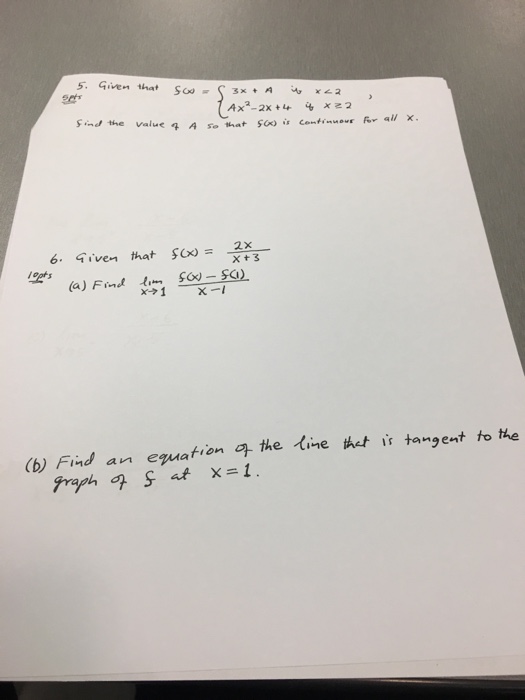 5. Given that f(x) = { 3x + A if x < 2
5pts { Ax² - 2x + 4 if x ≥ 2 ,
find the value of A so that f(x) is continuous for all x.
6. Given that f(x) = 2x / x + 3
10pts (a) Find lim x→1 f(x) - f(1) / x - 1
(b) Find an equation of the line that is tangent to the
graph of f at x = 1.